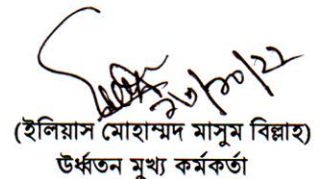 ২৩/১০/২২
(ইলিয়াস মোহাম্মদ মাসুম বিল্লাহ)
উর্ধ্বতন মুখ্য কর্মকর্তা